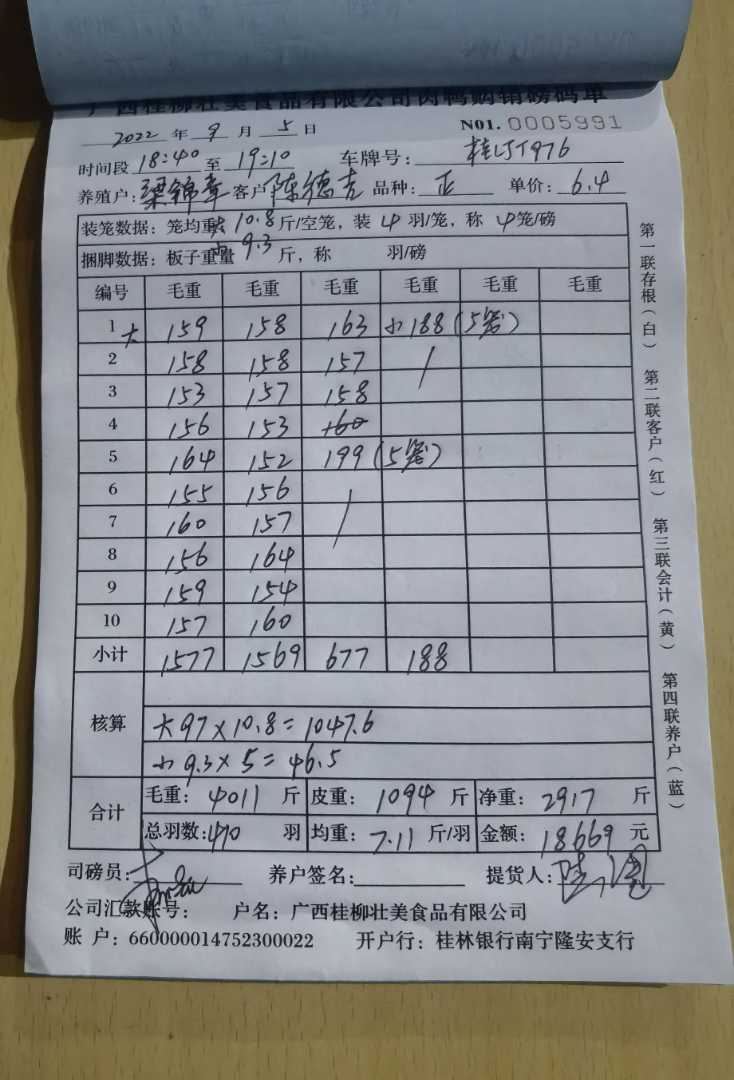 广西桂柳壮美食品有限公司肉鸭购销磅码单
2022 年 9 月 5 日 NO1. 0005991
时间段 18:40 至 19:10 车牌号:
养殖户: 梁锦章 客户 陈德吉 品种: 正 单价: 6.4
装笼数据: 笼均重 大 10.8 斤/空笼, 装 4 羽/笼, 称 4 笼/磅
捆脚数据: 板子重量 小 9.3 斤, 称 羽/磅
编号 毛重 毛重 毛重 毛重 毛重 毛重
1 大 159 158 163 小 188 (5笼)
2 158 158 157
3 153 157 158
4 156 153 160
5 164 152 199 (5笼)
6 155 156
7 160 157
8 156 164
9 159 154
10 157 160
小计 1577 1569 677 188
核算
大 97×10.8=1047.6
小 9.3×5=46.5
合计
毛重: 4011 斤 皮重: 1094 斤 净重: 2917 斤
总羽数: 410 羽 均重: 7.11 斤/羽 金额: 18669 元
司磅员: 养户签名: 提货人:
公司汇款账号: 户名: 广西桂柳壮美食品有限公司
账 户: 660000014752300022 开户行: 桂林银行南宁隆安支行
第一联存根(白) 第二联客户(红) 第三联会计(黄) 第四联养户(蓝)